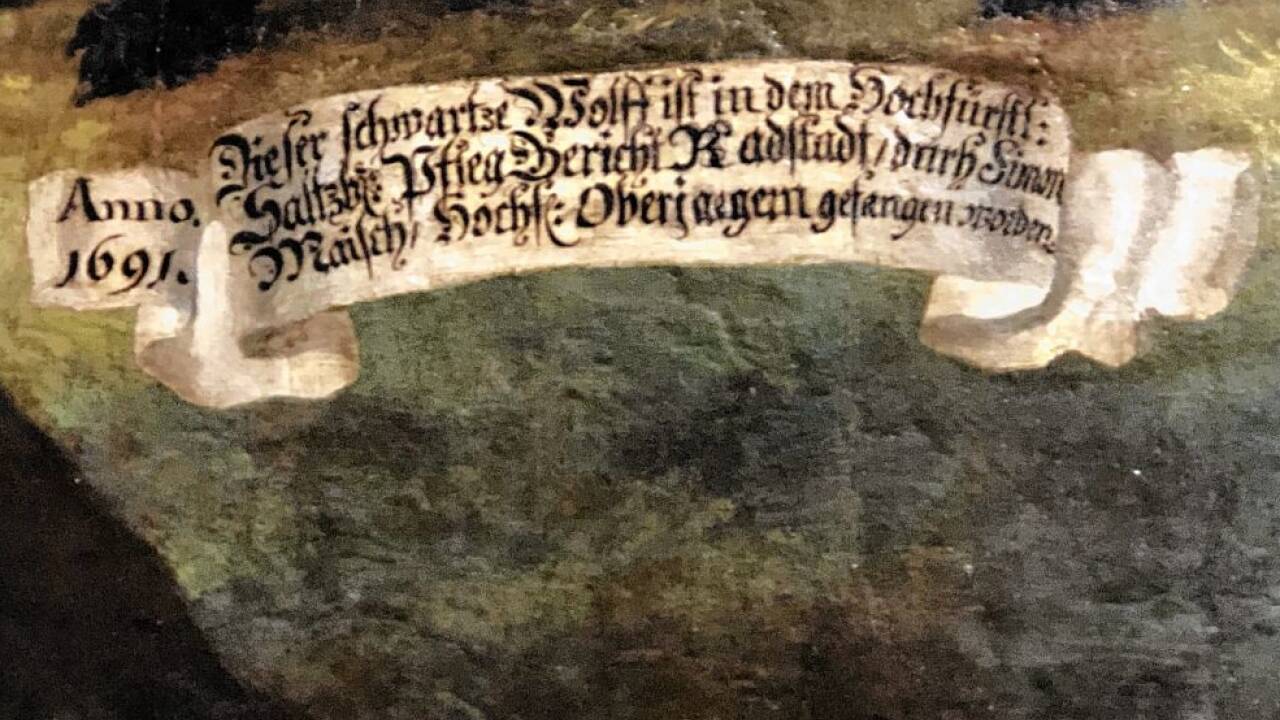 Anno.
1691.
Dieser schwartze Wolff ist in dem Hochfürstl:
Saltzb: Pfleg Gericht Radstadt / durch Simon
Maisch / Höchf: Oberjaegern gefangen worden.